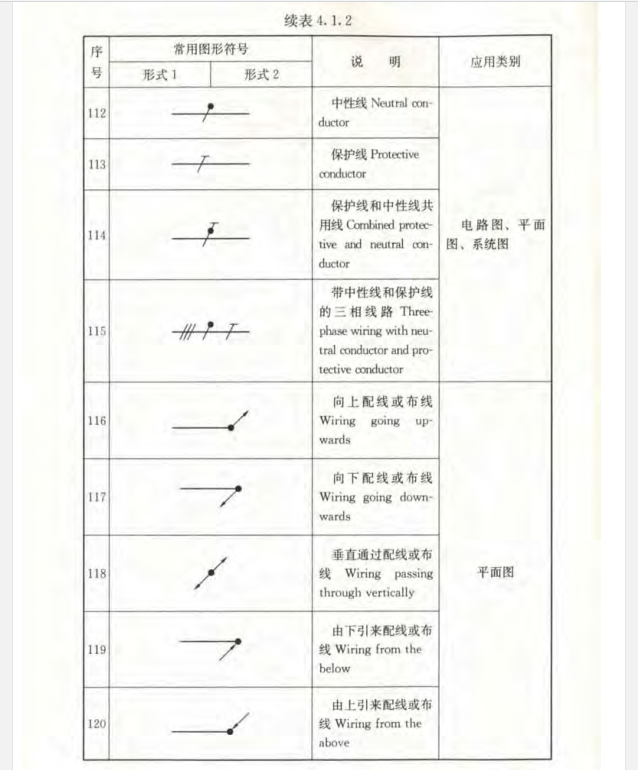 续表 4.1.2
序号
常用图形符号
形式 1
形式 2
说 明
应用类别
112
中性线 Neutral con-
ductor
113
保护线 Protective
conductor
114
保护线和中性线共
用线 Combined protec-
tive and neutral con-
ductor
115
带中性线和保护线
的三相线路 Three-
phase wiring with neu-
tral conductor and pro-
tective conductor
电路图、平面
图、系统图
116
向上配线或布线
Wiring going up-
wards
117
向下配线或布线
Wiring going down-
wards
118
垂直通过配线或布
线 Wiring passing
through vertically
119
由下引来配线或布
线 Wiring from the
below
120
由上引来配线或布
线 Wiring from the
above
平面图